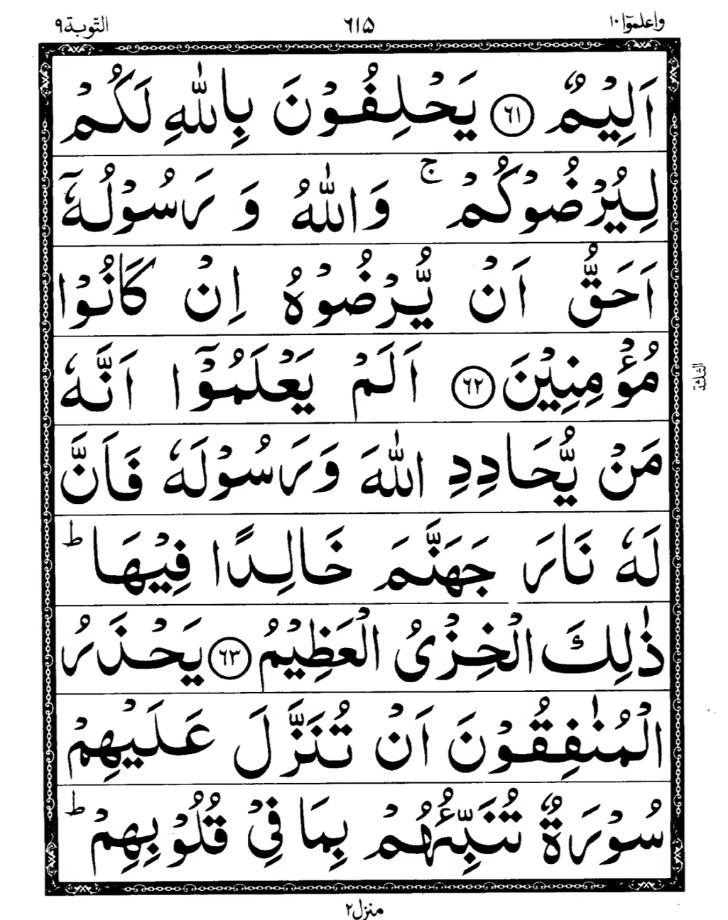 واعلموا ١٠ ٦١٥ التوبة ٩
اَلِيْمٌ ﴿٦١﴾ يَحْلِفُوْنَ بِاللّٰهِ لَكُمْ
لِيُرْضُوْكُمْ ۚ وَاللّٰهُ وَ رَسُوْلُهٗۤ
اَحَقُّ اَنْ يُّرْضُوْهُ اِنْ كَانُوْا
مُؤْمِنِيْنَ ﴿٦٢﴾ اَلَمْ يَعْلَمُوْۤا اَنَّهٗ
مَنْ يُّحَادِدِ اللّٰهَ وَرَسُوْلَهٗ فَاَنَّ
لَهٗ نَارَ جَهَنَّمَ خَالِدًا فِيْهَا ؕ
ذٰلِكَ الْخِزْىُ الْعَظِيْمُ ﴿٦٣﴾ يَحْذَرُ
الْمُنٰفِقُوْنَ اَنْ تُنَزَّلَ عَلَيْهِمْ
سُوْرَةٌ تُنَبِّئُهُمْ بِمَا فِىْ قُلُوْبِهِمْ ؕ
الثلثة
منزل ٢